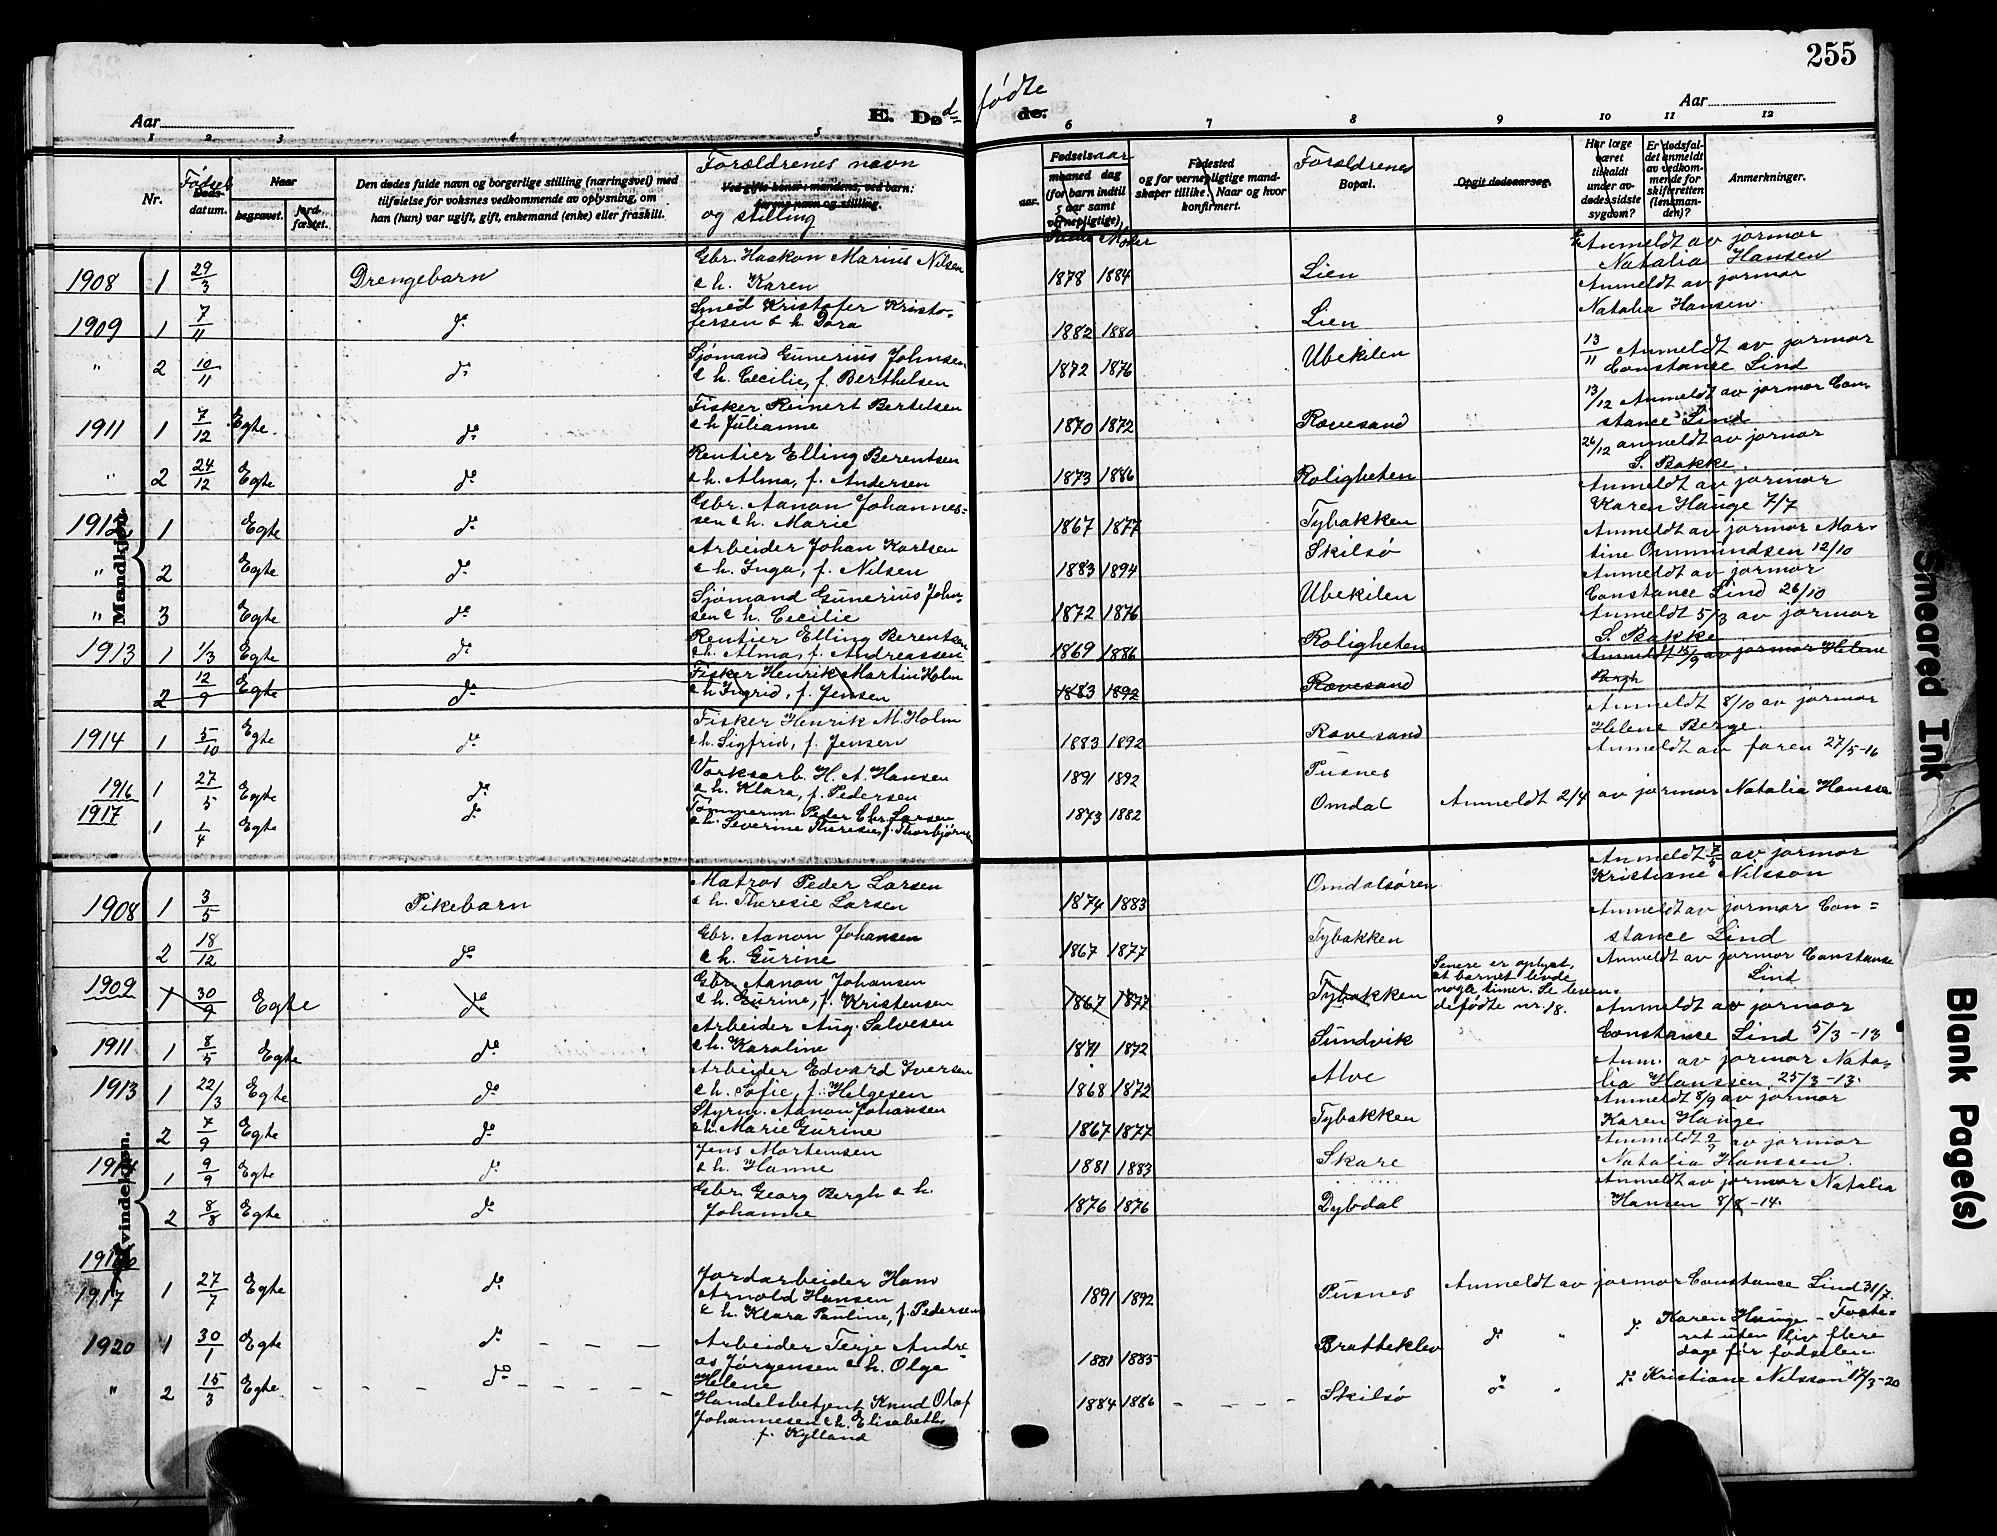 255
Aar
E. Dødfødte
de.
Aar
1 2 3 4 5 6 7 8 9 10 11 12
Nr.
Fødsels
Døds-
datum.
Naar
begravet.
jord-
fæstet.
Den dødes fulde navn og borgerlige stilling (næringsvei) med
tilføielse for voksnes vedkommende av oplysning, om
han (hun) var ugift, gift, enkemand (enke) eller fraskilt.
Forældrenes navn
Ved gifte koner: mandens, ved barn:
farens navn og stilling.
og stilling
Fødselsaar
aar.
maaned dag
(for barn indtil
5 aar samt
vernepligtige).
Fader Moder
Fødested
og for vernepligtige mand-
skaper tillike: Naar og hvor
konfirmert.
Forældrenes
Bopæl.
Opgit dødsaarsag.
Har læge
været
tilkaldt
under av-
dødes sidste
sygdom?
Er dødsfal-
det anmeldt
av vedkom-
mende for
skifteretten
(lensman-
den)?
Anmerkninger.
Mandkjøn.
1908 1 29/3 Drengebarn Gbr. Haakon Marius Nilsen
& h. Karen 1878 1884 Lien Anmeldt av jormor
Natalia Hansen
1909 1 7/11 do Smed Kristofer Kristo-
fersen & h. Dora 1882 1880 Lien Anmeldt av jormor
Natalia Hansen.
" 2 10/11 do Sjømand Gunerius Johnsen
& h. Cecilie, f. Berthelsen 1872 1876 Ubekilen 13/11 Anmeldt av jormor
Constance Lind
1911 1 7/12 Egte. do Fisker Reinert Bertelsen
& h Julianne 1870 1872 Rævesand 13/12 Anmeldt av jormor Con-
stance Lind
" 2 24/12 Egte do Rentier Elling Berentsen
& h. Alma, f. Andersen 1873 1886 Roligheten 26/12 anmeldt av jormor
S. Bakke.
1912 1 Egte do Gbr. Aanon Johannes-
sen & h. Marie 1867 1877 Tybakken Anmeldt av jormor
Karen Hauge 7/7
" 2 Egte do Arbeider Johan Karlsen
& h. Inga, f. Nilsen 1883 1894 Skilsø Anmeldt av jormor Mar-
tine Ommundsen 12/10
" 3 Egte do Sjømand Gunerius John-
sen & h. Cecilie 1872 1876 Ubekilen Anmeldt av jormor
Constance Lind 26/10
1913 1 1/3 Egte do Rentier Elling Berentsen
& h. Alma, f. Andreassen 1869 1886 Roligheten Anmeldt 5/3 av jormor
S. Bakke
2 12/9 Egte do Fisker Henrik Martin Holm
& h Ingrid, f. Jensen 1883 1892 Rævesand Anmeldt 15/9 av jormor Helene
Bergh
1914 1 5/10 Egte do Fisker Henrik M. Holm
& h. Sigfrid, f. Jensen 1883 1892 Rævesand Anmeldt 8/10 av jormor
Helene Berge.
1916 1 27/5 Egte do Verksarb. H. A. Hansen
& h. Klara, f. Pedersen 1891 1892 Pusnes Anmeldt av faren 27/5-16
1917 1 1/4 Egte do Tømmerm. Peder Chr. Larsen
& h. Severine Theresie, f. Thorbjørn 1873 1882 Omdal Anmeldt 2/4 av jormor Natalia Hanssen
Kvindekjøn.
1908 1 3/5 Pikebarn Matros Peder Larsen
& h. Theresie Larsen 1874 1883 Omdalsøren Anmeldt 7/5 av jormor
Kristiane Nilsson
2 18/12 do Gbr. Aanon Johansen
& h. Gurine 1867 1877 Tybakken Anmeldt av jormor Con=
stance Lind
1909 1 30/9 Egte do Gbr. Aanon Johansen
& h. Gurine, f. Kristensen 1867 1877 Tybakken Senere er oplyst,
at barnet levde
nogle timer. Se leven-
defødte nr. 18. Anmeldt av jormor Constanse
Lind
1911 1 8/5 Egte do Arbeider Aug. Salvesen
& h. Karoline 1871 1872 Sundvik Anmeldt av jormor
Constanse Lind 5/3-13
1913 1 22/3 Egte do Arbeider Edvard Iversen
& h. Sofie, f. Helgesen 1868 1872 Alve Anm. av jormor Nata-
lia Hanssen 25/3-13.
2 7/9 Egte do Styrm. Aanon Johansen
& h. Marie Gurine 1867 1877 Tybakken Anmeldt 8/9 av jormor
Karen Hauge
1914 1 9/9 Egte do Jens Mortensen
& h. Hanne 1881 1883 Skare Anmeldt 9/9 av jormor
Natalia Hanssen.
2 8/8 Egte do Gbr. Georg Bergh & h.
Johanne 1876 1876 Dybdal Anmeldt av jormor Natalia
Hansen 8/8-14.
1916
1917 1 27/7 Egte do Jordarbeider Hans
Arnold Hansen
& h. Klara Pauline, f. Pedersen 1891 1892 Pusnes Anmeldt av jormor Constance Lind 31/7.
1920 1 30/1 Egte do Arbeider Terje Andre-
as Jørgensen & h. Olga
Helene 1881 1885 Bratteklev do " do Karen Hauge - Foste-
ret uten liv flere
dage før fødselen.
" 2 15/3 Egte do Handelsbetjent Knud Olaf
Johannesen & h. Elisabeth,
f. Kylland 1884 1886 Skilsø do " do Kristiane Nilsson 17/3-20
Smeared Ink
Blank Page(s)